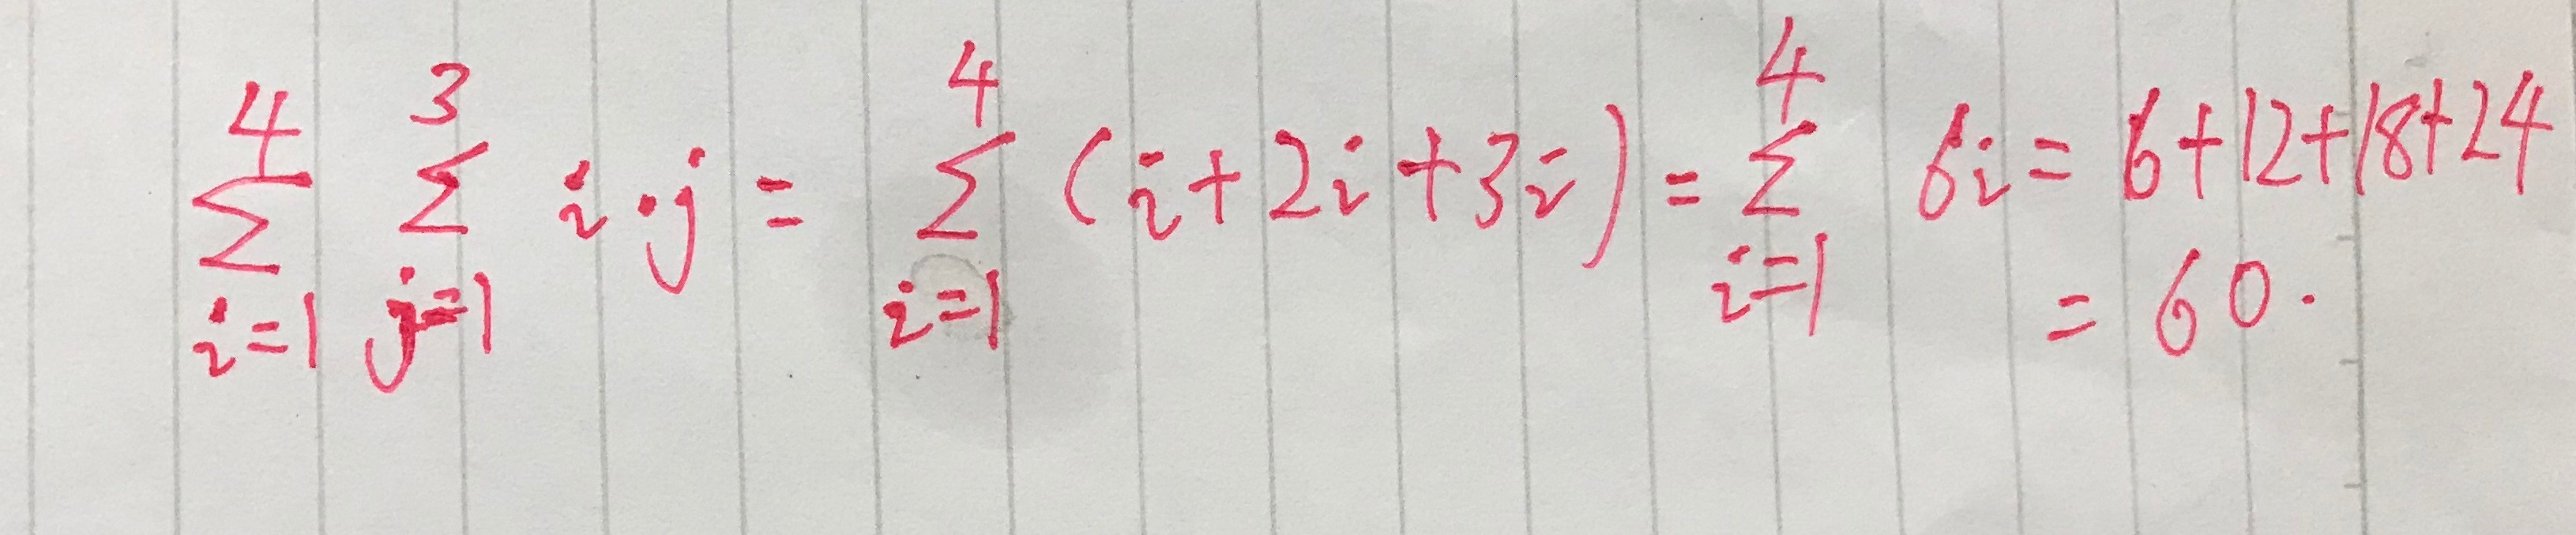 $\sum_{i=1}^{4} \sum_{j=1}^{3} i \cdot j = \sum_{i=1}^{4} (i + 2i + 3i) = \sum_{i=1}^{4} 6i = 6 + 12 + 18 + 24$
$= 60.$